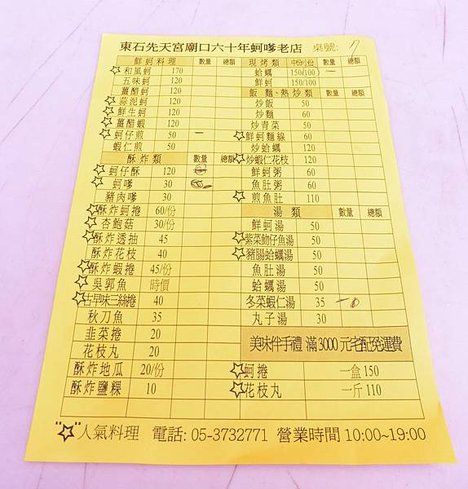 東石先天宮廟口六十年蚵嗲老店 桌號: 7
鮮蚵料理 數量 總額
☆和風蚵 170
五味蚵 120
薑醋蚵 120
☆蒜泥蚵 120
☆鮮生蚵 120
☆薑醋蝦 120
☆蚵仔煎 50 一
蝦仁煎 50
酥炸類 數量 總額
☆蚵仔酥 120
☆蚵嗲 30
豬肉嗲 30
☆酥炸蚵捲 60/份
☆杏鮑菇 30/份
☆酥炸透抽 45
酥炸花枝 40
☆酥炸蝦捲 45/份
☆吳郭魚 時價
☆古早味三絲捲 40
秋刀魚 35
韭菜捲 20
花枝丸 20
酥炸地瓜 20/份
酥炸鹽粿 10
現烤類 中份/份 數量 總額
蛤蠣 150/100
鮮蚵 150/100
飯、麵、熱炒類 數量 總額
炒飯 50
炒麵 60
炒青菜 50
☆鮮蚵麵線 60
炒蛤蠣 120
☆炒蝦仁花枝 120
鮮蚵粥 60
魚肚粥 60
☆煎魚肚 110
湯類 數量 總額
鮮蚵湯 50
☆紫菜魩仔魚湯 50
☆豬腸蛤蠣湯 50
魚肚湯 50
蛤蠣湯 50
冬菜蝦仁湯 35 一
丸子湯 30
美味伴手禮 滿3000元宅配免運費
☆蚵捲 一盒150
☆花枝丸 一斤110
"☆"人氣料理 電話: 05-3732771 營業時間 10:00~19:00